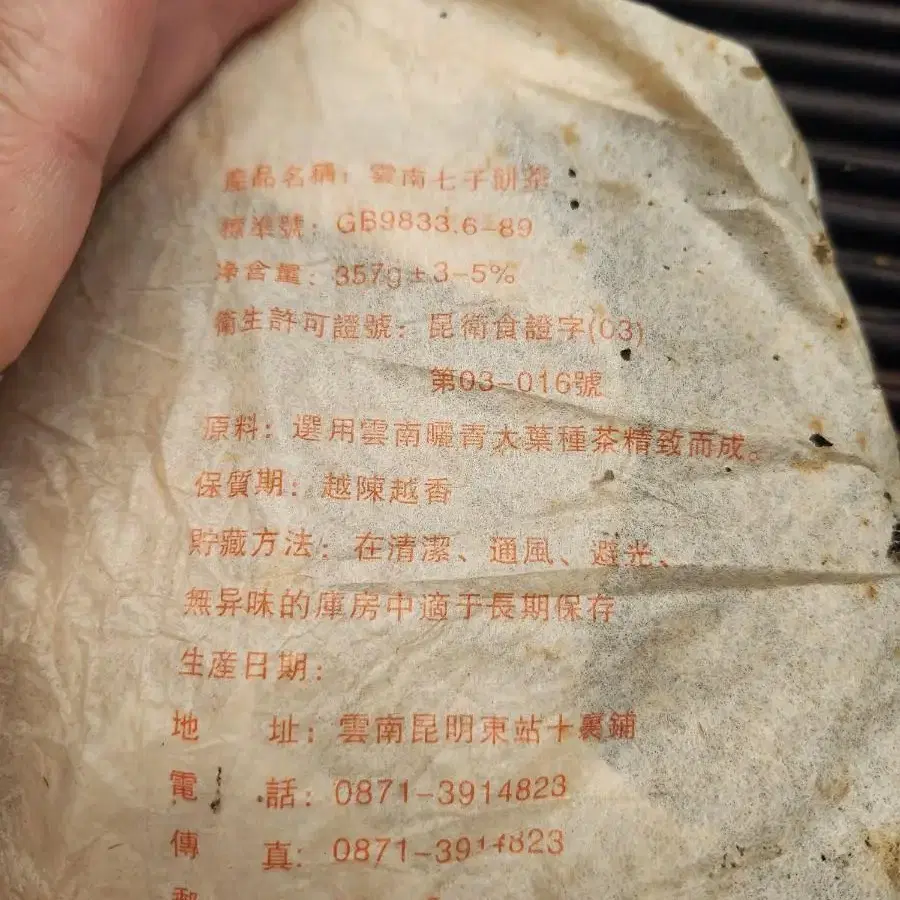 產品名稱：雲南七子餅茶
標準號：GB9833.6-89
净含量：357g±3-5%
衛生許可證號：昆衛食證字(03)
第03-016號
原料：選用雲南曬青大葉種茶精致而成。
保質期：越陳越香
貯藏方法：在清潔、通風、避光、
無异味的庫房中適于長期保存
生產日期：
地　　址：雲南昆明東站十裏鋪
電　　話：0871-3914823
傳　　真：0871-3914823